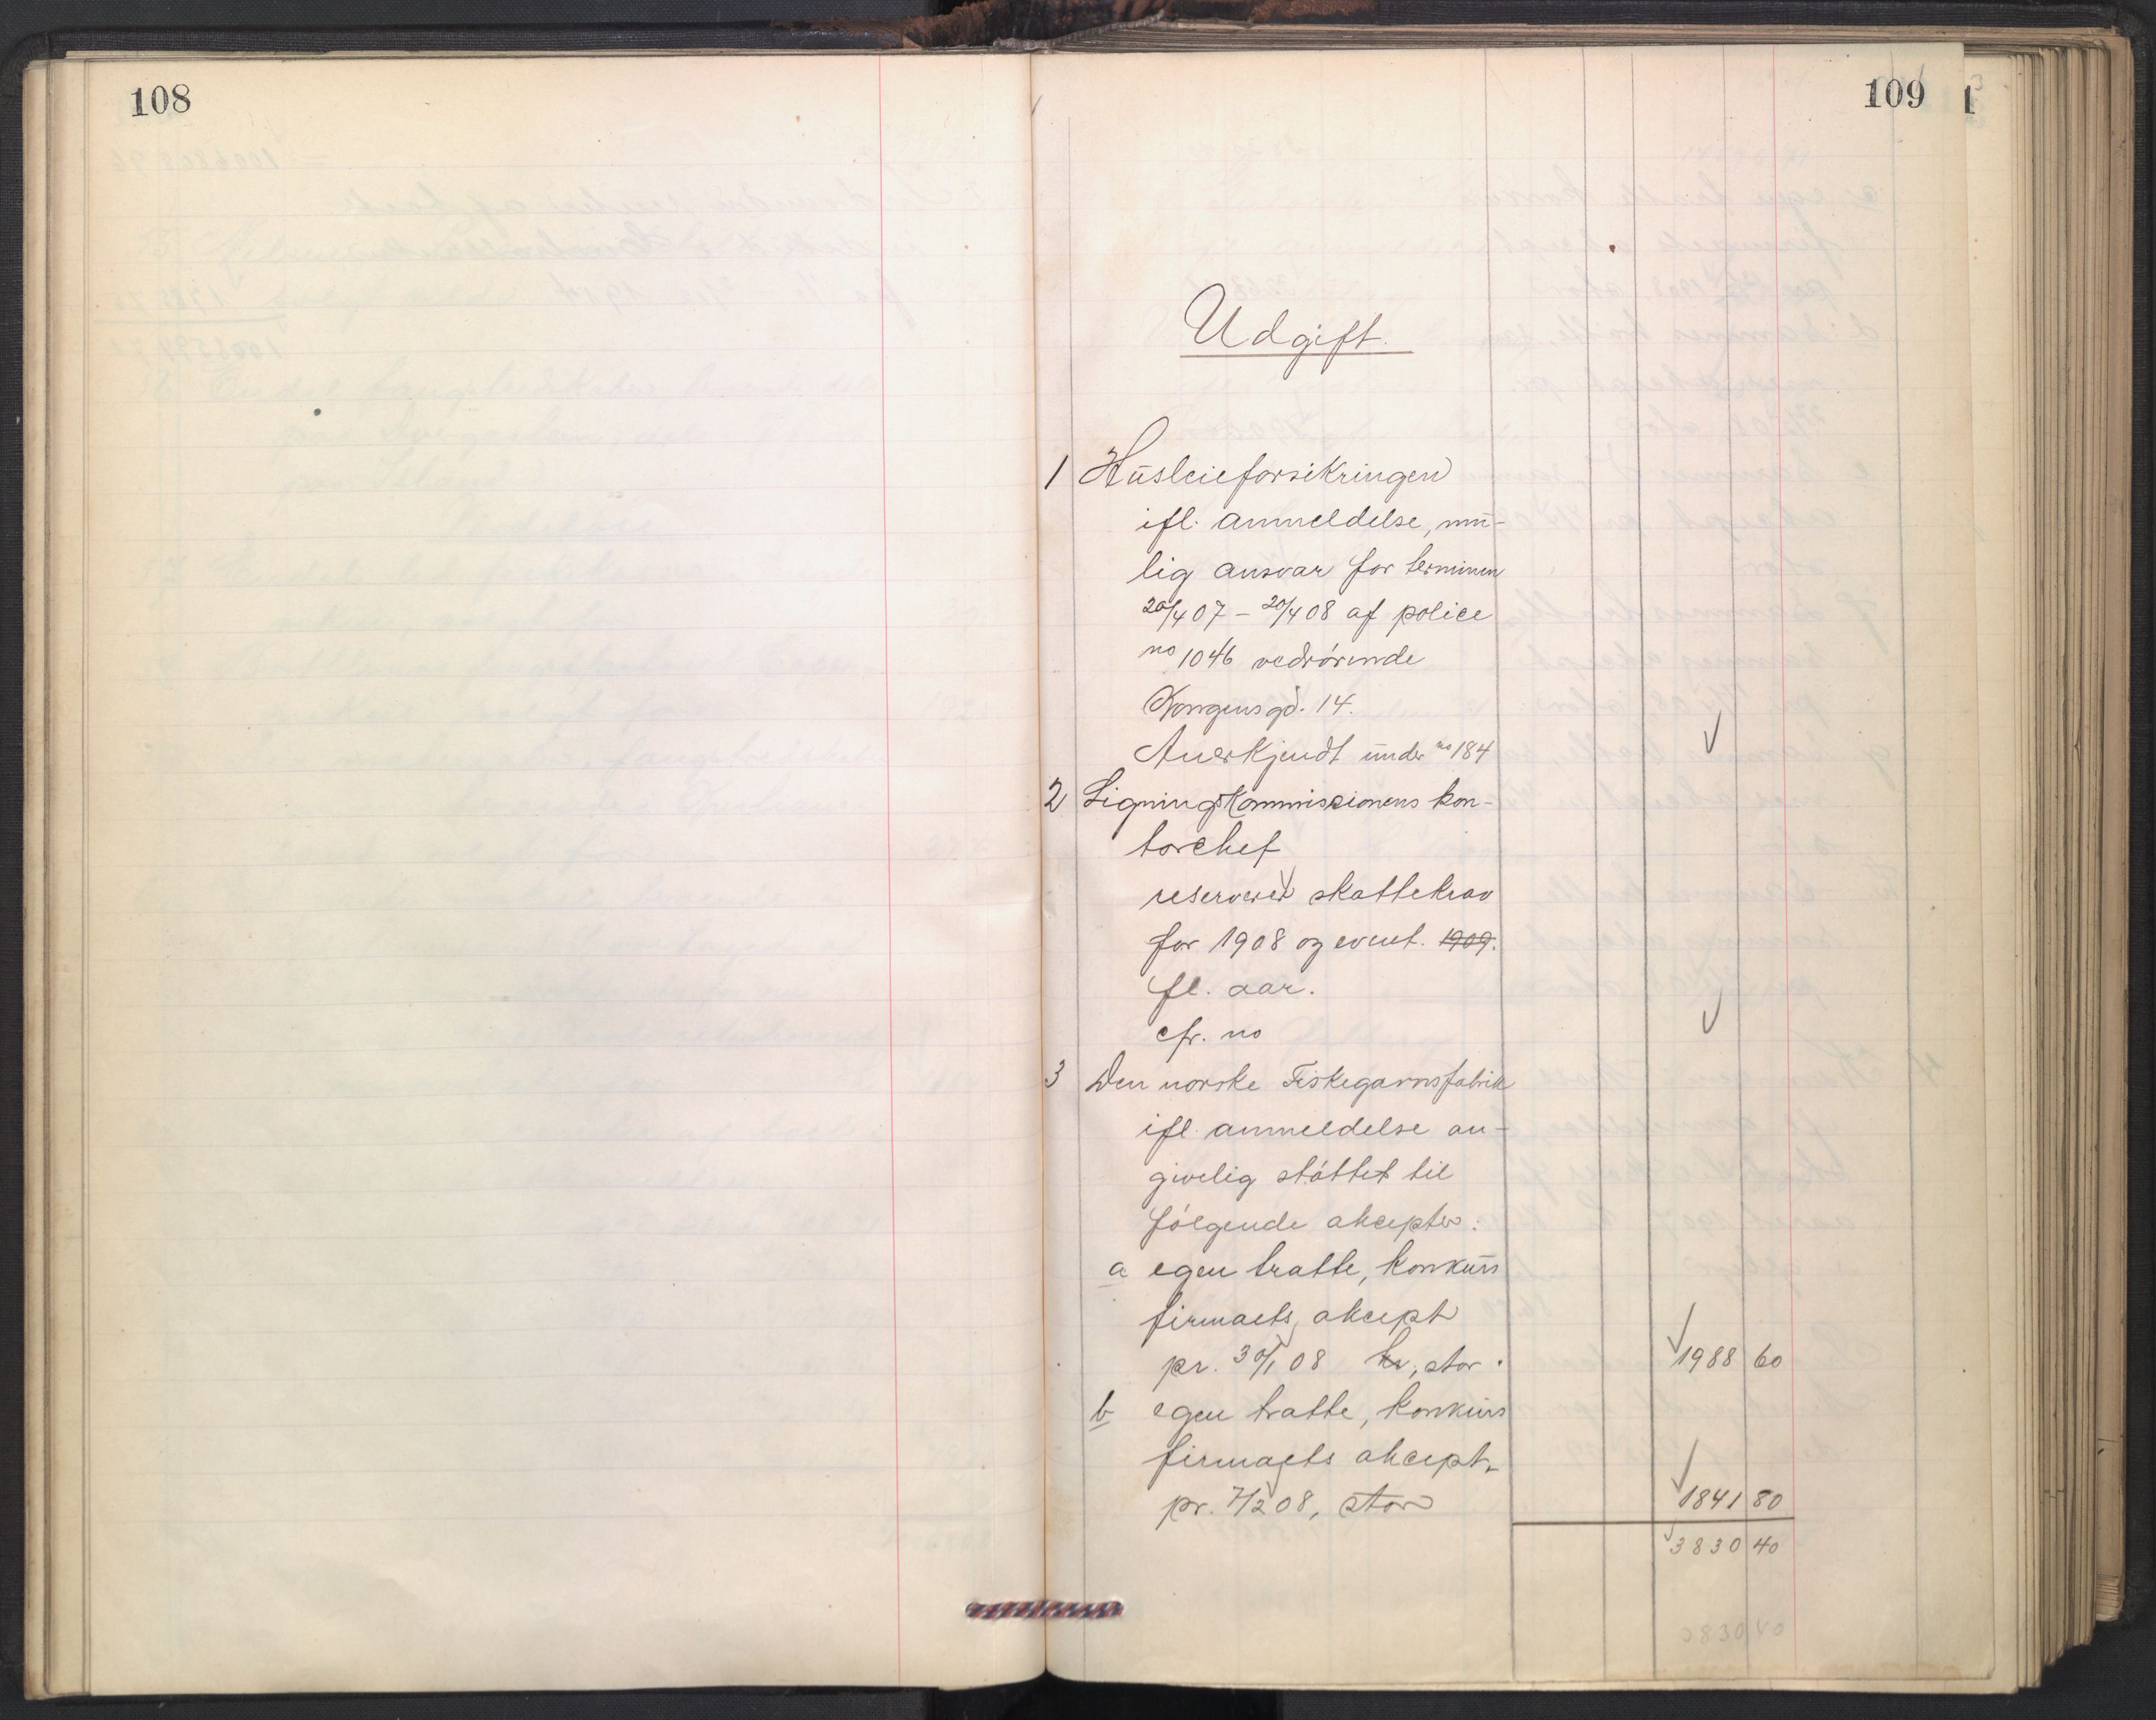 108
109
Udgift.
1 Husleieforsikringen
ifl. anmeldelse, mu-
lig ansvar for terminen
20/4 07 - 20/4 08 af police
no 1046 vedrørende
Kongensgd. 14.
Anerkjendt under no 184
2 Ligningskommissionens kon-
torchef
reserverer skattekrav
for 1908 og event. 1909.
fl. aar.
cfr. no
3 Den norske Fiskegarnsfabrik
ifl. anmeldelse an-
givelig støttet til
følgende akcepter:
a egen tratte, konkurs
firmaets akcept
pr. 30/1 08 kr, stor 1988 60
b egen tratte, konkurs
firmaets akcept
pr. 7/2 08, stor 1841 80
3830 40